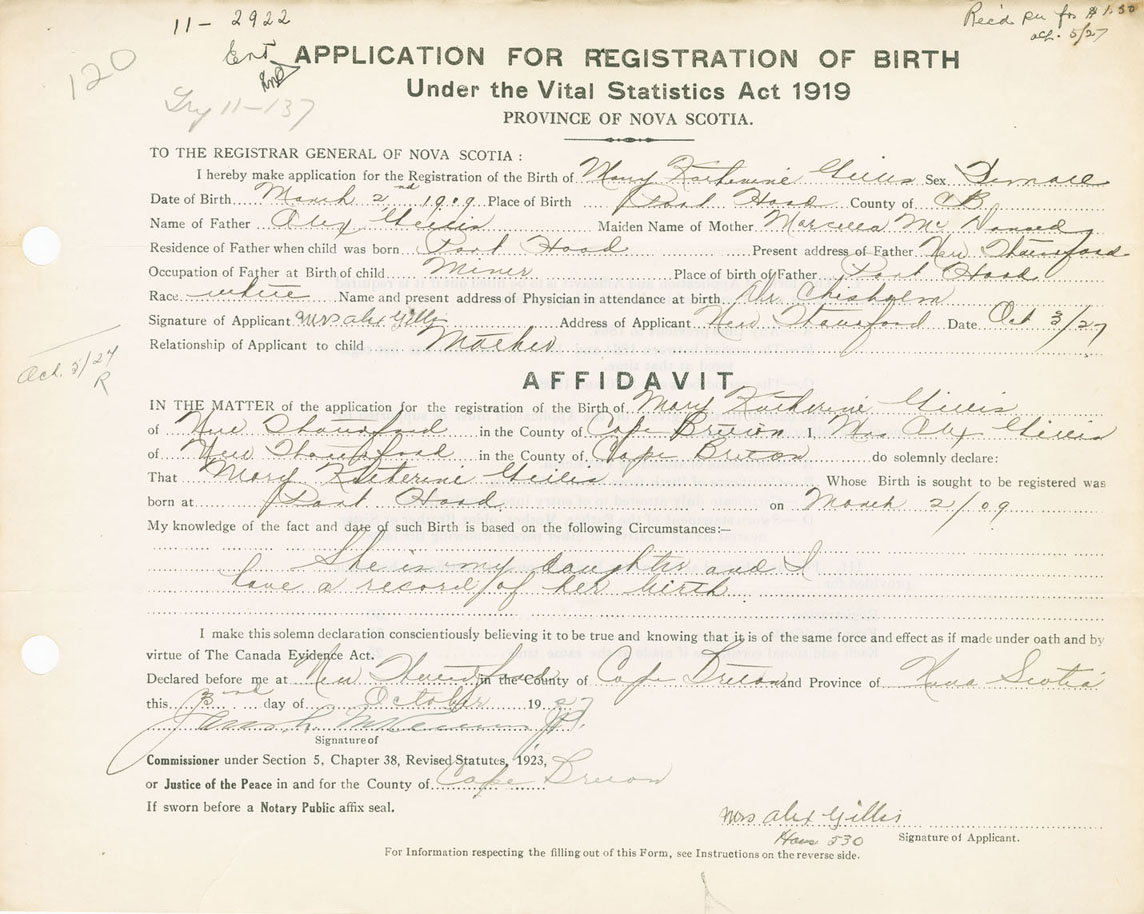 11 - 2922
Rec'd pu for $1.50
Oct. 5/27
120
Ent
APPLICATION FOR REGISTRATION OF BIRTH
Under the Vital Statistics Act 1919
Try 11-137
PROVINCE OF NOVA SCOTIA.
TO THE REGISTRAR GENERAL OF NOVA SCOTIA :
I hereby make application for the Registration of the Birth of Mary Katherine Gillis Sex Female
Date of Birth March 2nd 1909 Place of Birth Port Hood County of CB
Name of Father Alex Gillis Maiden Name of Mother Marcella Mc Donald
Residence of Father when child was born Port Hood Present address of Father New
Occupation of Father at Birth of child Miner Place of birth of Father Port Hood
Race white Name and present address of Physician in attendance at birth Dr Chisholm
Signature of Applicant Mrs Alex Gillis Address of Applicant New Date Oct 3/27
Relationship of Applicant to child Mother
Oct. 5/27
R
AFFIDAVIT
IN THE MATTER of the application for the registration of the Birth of Mary Katherine Gillis
of New in the County of Cape Breton I, Mrs Alex Gillis
of New in the County of Cape Breton do solemnly declare:
That Mary Katherine Gillis Whose Birth is sought to be registered was
born at Port Hood on March 2/09
My knowledge of the fact and date of such Birth is based on the following Circumstances:—
She is my daughter and I
have a record of her birth
I make this solemn declaration conscientiously believing it to be true and knowing that it is of the same force and effect as if made under oath and by
virtue of The Canada Evidence Act.
Declared before me at New in the County of Cape Breton and Province of Nova Scotia
this 3 day of October 1927
J.P.
Signature of
Commissioner under Section 5, Chapter 38, Revised Statutes, 1923,
or Justice of the Peace in and for the County of Cape Breton
If sworn before a Notary Public affix seal.
Mrs Alex Gillis
530
Signature of Applicant.
For Information respecting the filling out of this Form, see Instructions on the reverse side.